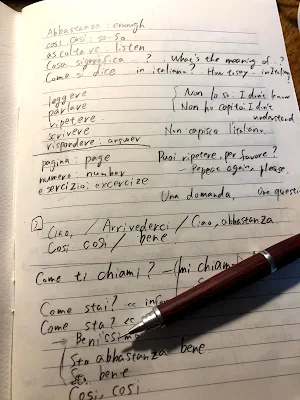 Abbastanza : enough
così così : so-so
ascoltare listen
Cosa significa ...? What's the meaning of ..?
Come si dice in italiano? How to say in Italian?
leggere
Non lo so: I don't know
parlare
Non ho capito: I don't understand
ripetere
scrivere
Non capisco Italiano.
rispondere: answer
pagina: page
Puoi ripetere, per favore?
numero: number
- Repeat again, please.
esercizio: excercize
Una domanda, One questi
2
Ciao, / Arrivederci / Ciao, abbastanza
Così così / bene
Come ti chiami? - (mi chiamo
Come stai? ← infor
Come sta? ←
- Benissimo
Sto abbastanza bene
Sto bene
Così, così